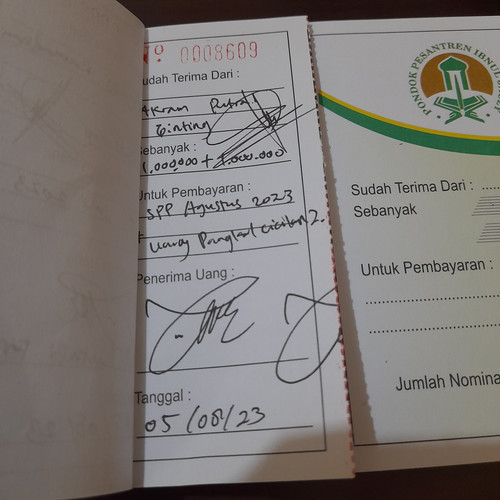 Nº 0008609
Sudah Terima Dari :
Akram
Ginting
Sebanyak :
1,000,000 + 1.000.000
Untuk Pembayaran :
SPP Agustus 2023
+ uang Pangkal cicilan 2.
Penerima Uang :
Tanggal :
05/08/23
PONDOK PESANTREN IBNU
Sudah Terima Dari : ....
Sebanyak
Untuk Pembayaran :
Jumlah Nomina